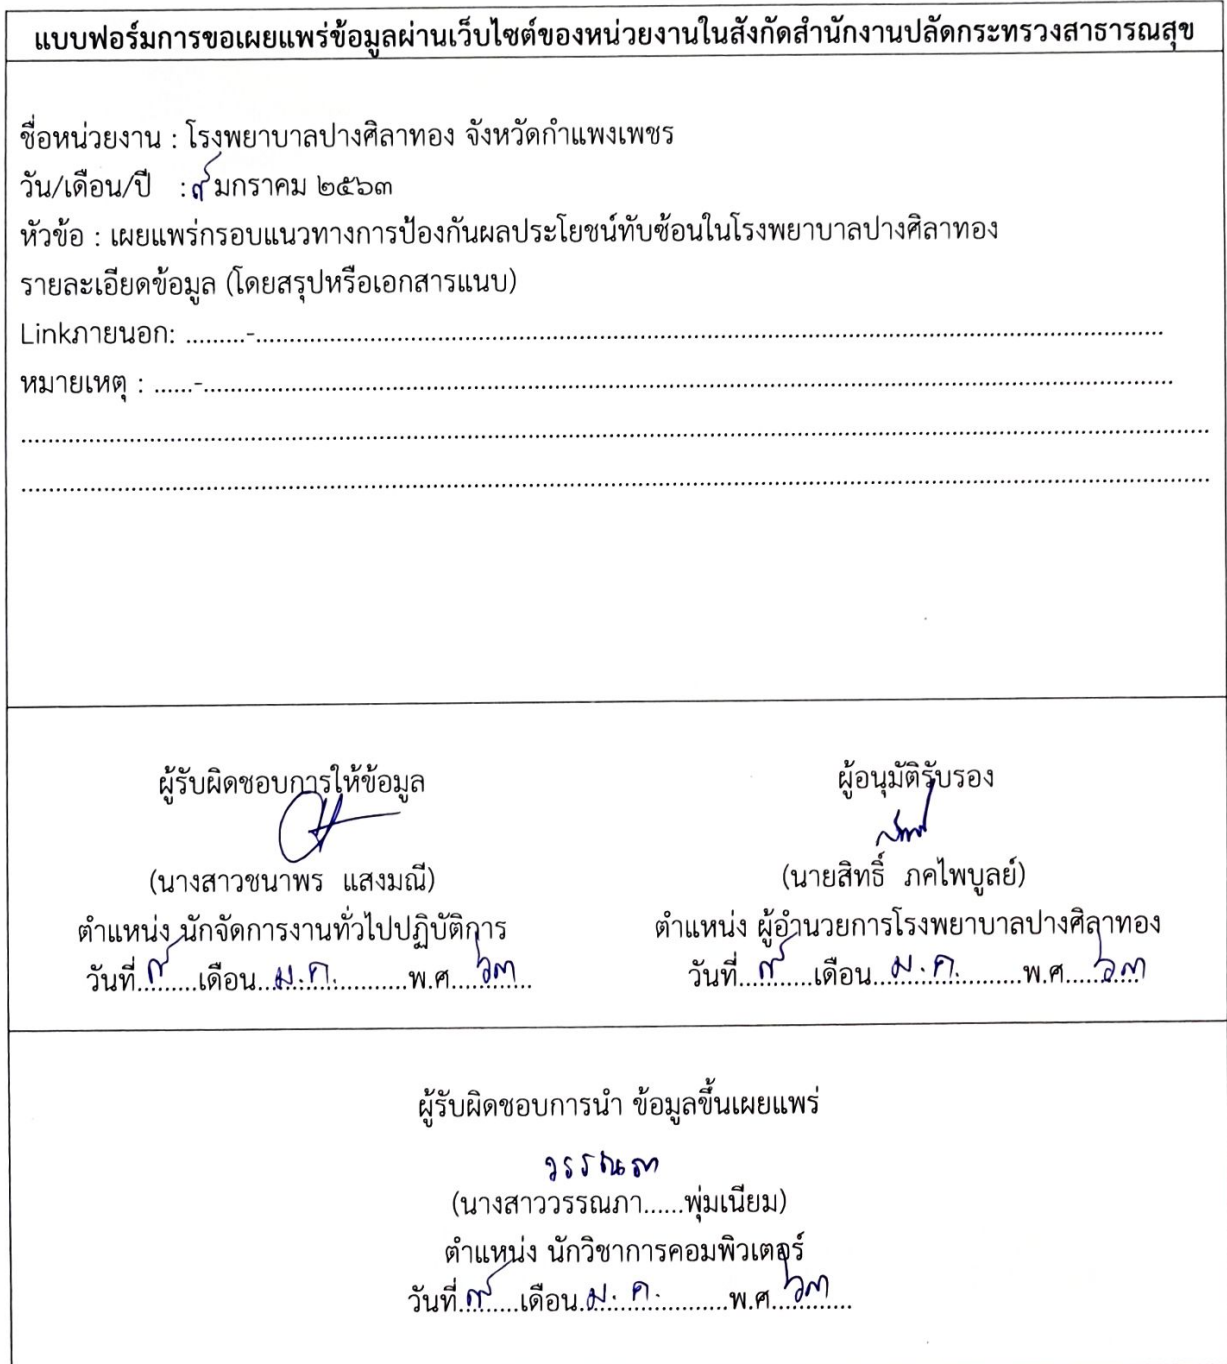 แบบฟอร์มการขอเผยแพร่ข้อมูลผ่านเว็บไซต์ของหน่วยงานในสังกัดสำนักงานปลัดกระทรวงสาธารณสุข
ชื่อหน่วยงาน : โรงพยาบาลปางศิลาทอง จังหวัดกำแพงเพชร
วัน/เดือน/ปี : ๙ มกราคม ๒๕๖๓
หัวข้อ : เผยแพร่กรอบแนวทางการป้องกันผลประโยชน์ทับซ้อนในโรงพยาบาลปางศิลาทอง
รายละเอียดข้อมูล (โดยสรุปหรือเอกสารแนบ)
Linkภายนอก: .........-.........
หมายเหตุ : ......-.........
ผู้รับผิดชอบการให้ข้อมูล
(นางสาวชนาพร แสงมณี)
ตำแหน่ง นักจัดการงานทั่วไปปฏิบัติการ
วันที่...๙...เดือน...ม.ค....พ.ศ...๖๓...
ผู้อนุมัติรับรอง
(นายสิทธิ์ ภคไพบูลย์)
ตำแหน่ง ผู้อำนวยการโรงพยาบาลปางศิลาทอง
วันที่...๙...เดือน...ม.ค....พ.ศ...๖๓...
ผู้รับผิดชอบการนำ ข้อมูลขึ้นเผยแพร่
วรรณภา
(นางสาววรรณภา......พุ่มเนียม)
ตำแหน่ง นักวิชาการคอมพิวเตอร์
วันที่...๙...เดือน...ม.ค....พ.ศ...๖๓...